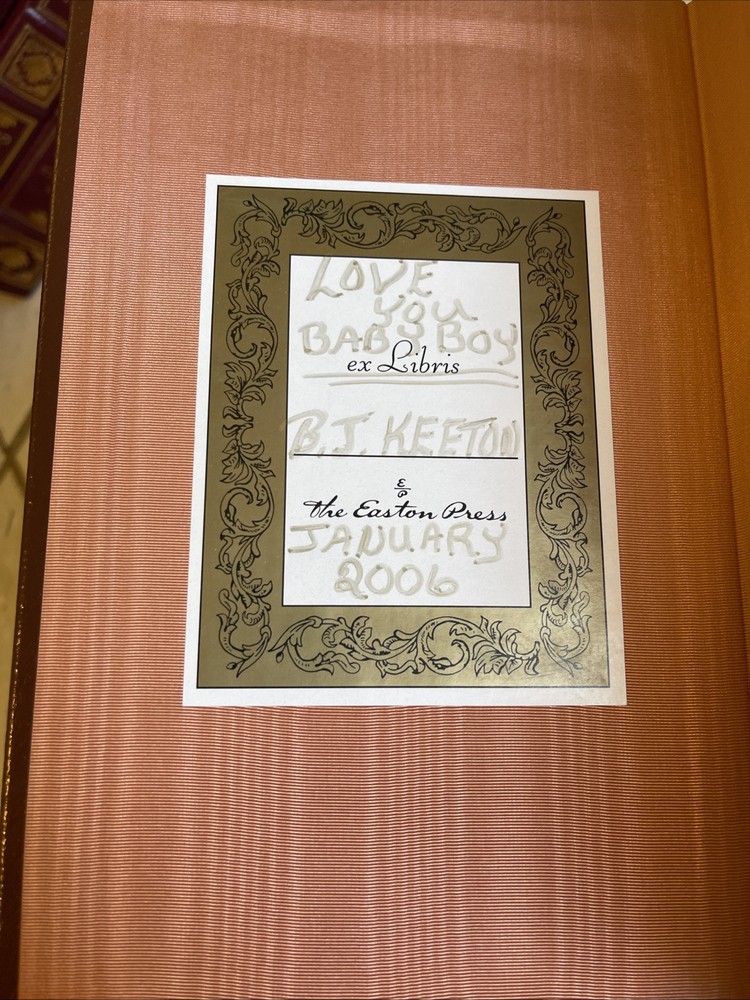 LOVE
you
BABY BOY
ex Libris
B.J. KEETON
E
P
the Easton Press
JANUARY
2006